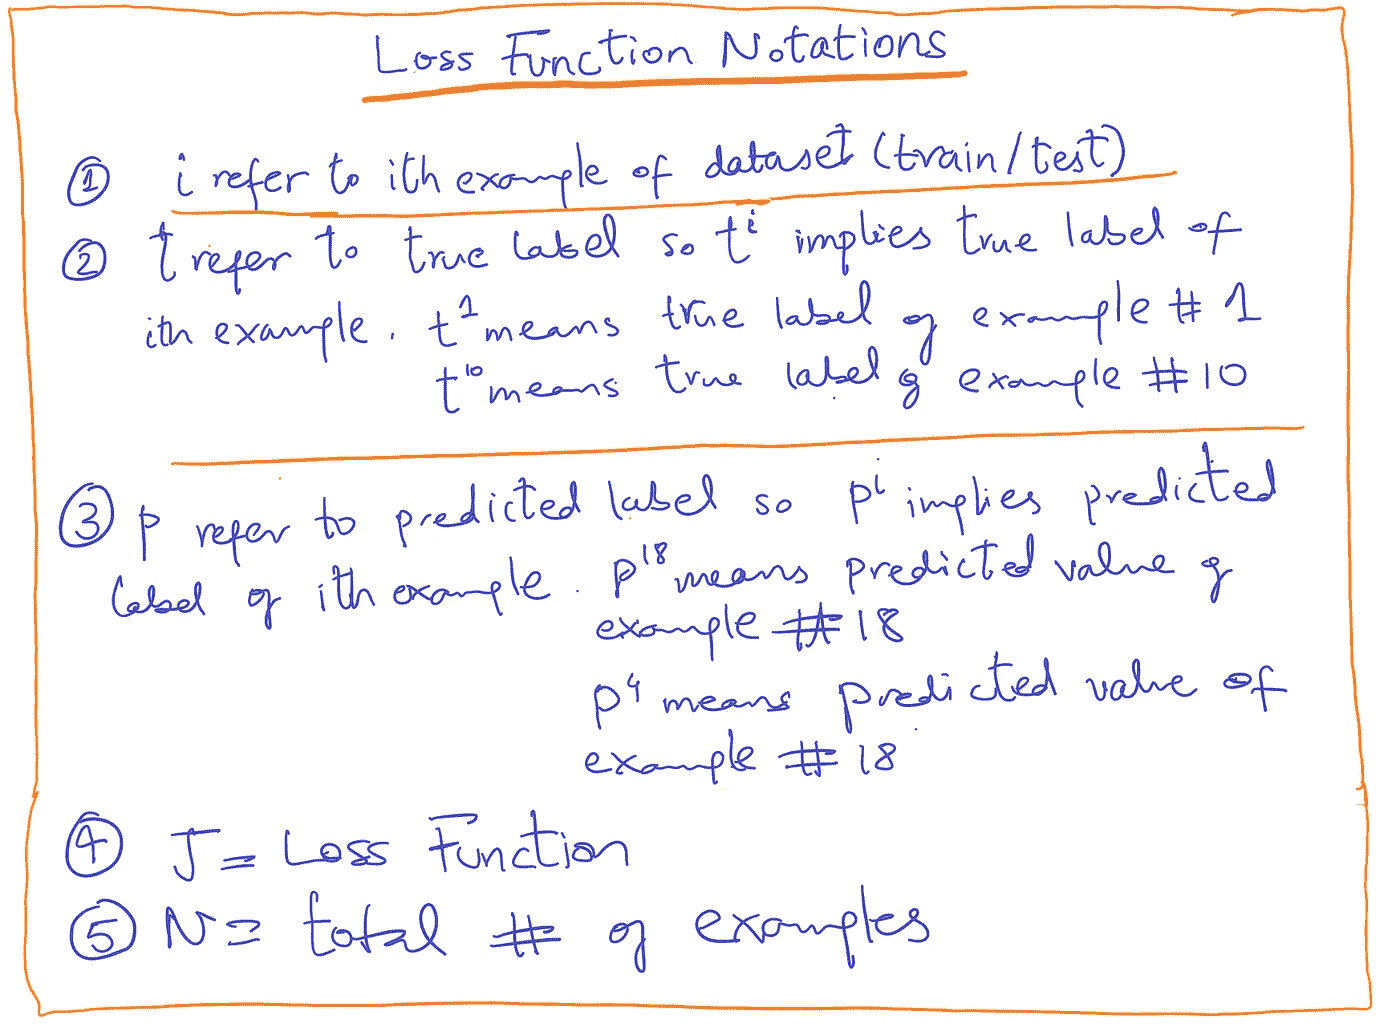 Loss Function Notations
① i refer to ith example of dataset (train/test)
② t refer to true label so tⁱ implies true label of
ith example. t¹ means true label of example # 1
t¹⁰ means true label of example # 10
③ p refer to predicted label so pⁱ implies predicted
label of ith example. p¹⁸ means predicted value of
example # 18
p⁴ means predicted value of
example # 18
④ J = Loss Function
⑤ N = total # of examples